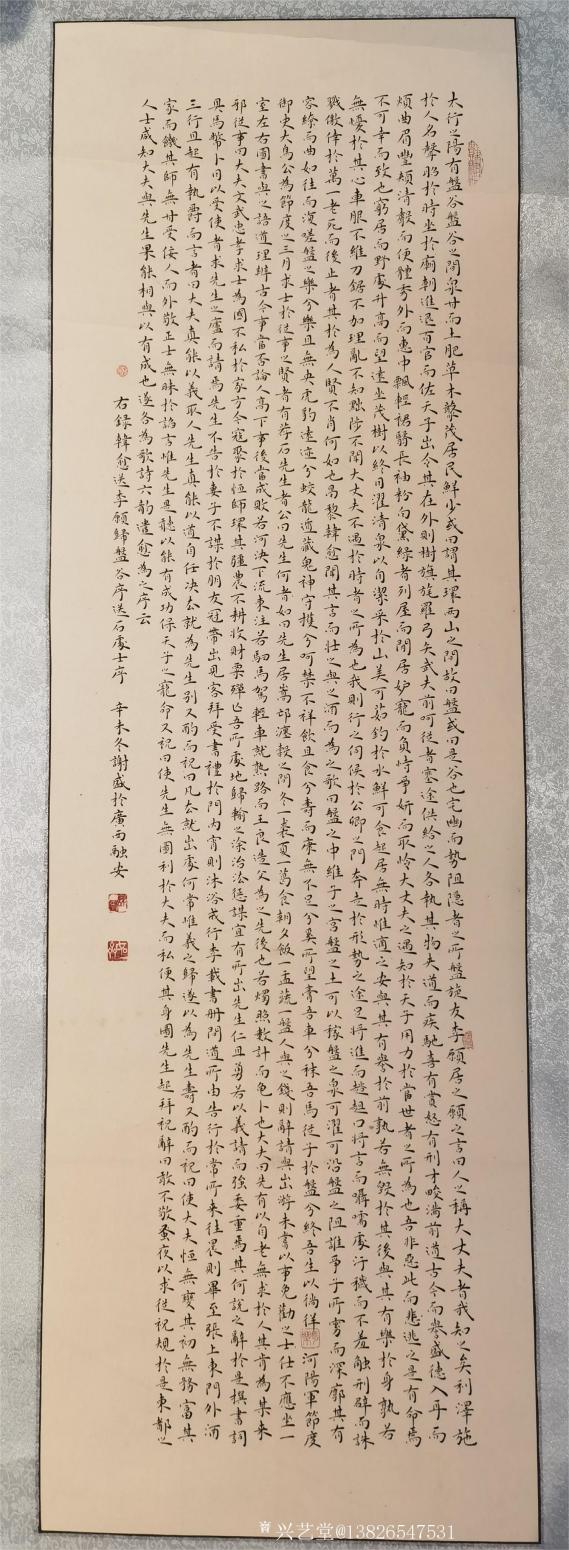 太行之陽有盤谷盤谷之間泉甘而土肥草木藂茂居民鮮少或曰謂其環兩山之間故曰盤或曰是谷也宅幽而勢阻隱者之所盤旋友李愿居之愿之言曰人之稱大丈夫者我知之矣利澤施
於人名聲昭於時坐於廟朝進退百官而佐天子出令其在外則樹旗旄羅弓矢武夫前呵從者塞途供給之人各執其物夾道而疾馳喜有賞怒有刑才畯滿前道古今而譽盛德入耳而不
煩曲眉豐頰清聲而便體秀外而惠中飄輕裾翳長袖粉白黛綠者列屋而閒居妒寵而負恃爭妍而取憐大丈夫之遇知於天子用力於當世者之所為也吾非惡此而逃之是有命焉
不可幸而致也窮居而野處升高而望遠坐茂樹以終日濯清泉以自潔采於山美可茹釣於水鮮可食起居無時惟適之安與其有譽於前孰若無毀於其後與其有樂於身孰若
無憂於其心車服不維刀鋸不加理亂不知黜陟不聞大丈夫不遇於時者之所為也我則行之伺候於公卿之門奔走於形勢之途足將進而趑趄口將言而囁嚅處汙穢而不羞觸刑辟而誅
戮徼倖於萬一老死而後止者其於為人賢不肖何如也昌黎韓愈聞其言而壯之與之酒而為之歌曰盤之中維子之宮盤之土可以稼盤之泉可濯可沿盤之阻誰爭子所窈而深廓其有
容繚而曲如往而復嗟盤之樂兮樂且無央虎豹遠迹兮蛟龍遁藏鬼神守護兮呵禁不祥飲且食兮壽而康無不足兮奚所望膏吾車兮秣吾馬從子於盤兮終吾生以徜徉河陽軍節度
御史大烏公為節度之三月求士於從事之賢者有薦石先生者公曰先生何者如曰先生居嵩邙瀍榖之間冬一裘夏一葛食朝夕飯一盂蔬一盤人與之錢則辭請與出游未嘗以事免勸之士仕不應坐一
室左右圖書與之語道理辨古今事當否論人高下事後當成敗若河決下流東注若駟馬駕輕車就熟路而王良造父為之先後也若燭照數計而龜卜也大夫曰先有以自老無求於人其肯為某來
邪從事曰大夫文武忠孝求士為國不私於家方今寇聚於恒師環其疆農不耕收財粟殫亡吾所處地歸輸之涂治法征謀宜有所出先生仁且勇若以義請而強委重焉其何說之辭於是撰書詞
具馬幣卜日以受使者求先生之廬而請焉先生不告於妻子不謀於朋友冠帶出見客拜受書禮於門內宵則沐浴戒行李載書冊問道所由告行於常所來往晨則畢至張上東門外酒
三行且起有執爵而言者曰大夫真能以義取人先生真能以道自任決去就為先生別又酌而祝曰凡去就出處何常惟義之歸遂以為先生壽又酌而祝曰使大夫恒無變其初無務富其
家而饑其師無甘受佞人而外敬正士無昧於諂言惟先生是聽以能有成功保天子之寵命又祝曰使先生無圖利於大夫而私便其身圖先生起拜祝辭曰敢不敬蚤夜以求從祝規於是東都之
人士咸知大夫與先生果能相與以有成也遂各為歌詩六韵遣愈為之序云
右錄韓愈送李愿歸盤谷序送石處士序 辛未冬謝盛於廣西融安
兴艺堂@13826547531